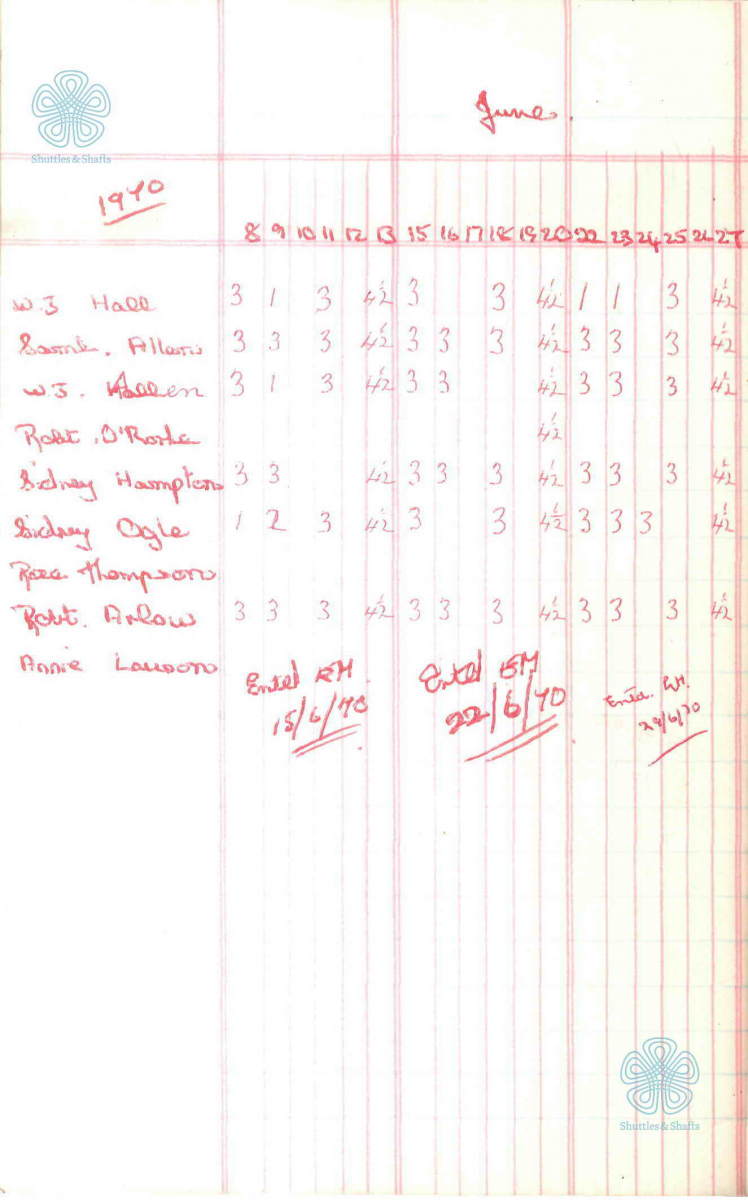 June.
Shuttles & Shafts
1970
8 9 10 11 12 13 15 16 17 18 19 20 22 23 24 25 26 27
W.J Hall 3 1 3 4½ 3 3 4½ 1 1 3 4½
Saml. Allen 3 3 3 4½ 3 3 3 4½ 3 3 3 4½
W.J. Hallen 3 1 3 4½ 3 3 4½ 3 3 3 4½
Robt. O'Rorke 4½
Sidney Hampton 3 3 4½ 3 3 3 4½ 3 3 3 4½
Sidney Ogle 1 2 3 4½ 3 3 4½ 3 3 3 4½
Thompson
Robt. Arlow 3 3 3 4½ 3 3 3 4½ 3 3 3 4½
Annie Lawson
Entd 15/6/70
Entd 22/6/70
Entd. 29/6/70
Shuttles & Shafts